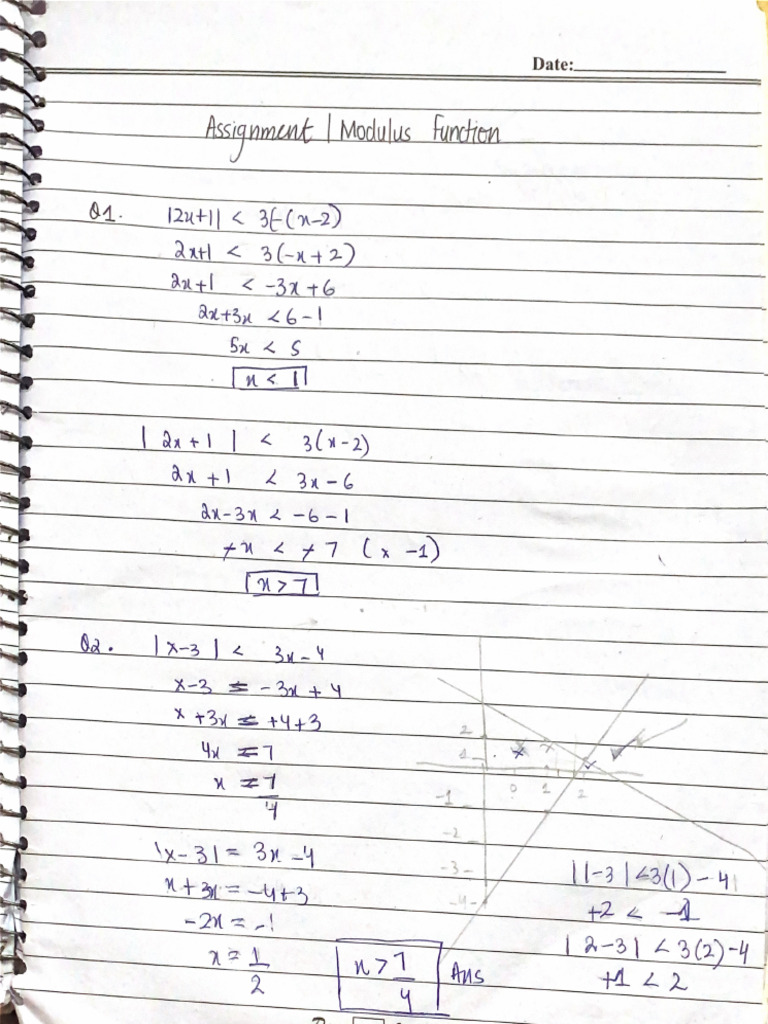 Date:
Assignment | Modulus Function
Q1. |2x+1| < 3(-(x-2)
2x+1 < 3(-x+2)
2x+1 < -3x+6
2x+3x < 6-1
5x < 5
x < 1
| 2x+1 | < 3(x-2)
2x+1 < 3x-6
2x-3x < -6-1
-x < -7 (x -1)
x > 7
Q2. |x-3| < 3x-4
x-3 = -3x+4
x+3x = +4+3
4x = 7
x = 7/4
|x-3| = 3x-4
x+3x = -4+3
-2x = -1
x = 1/2
x > 7/4 Ans
2
1
0 1 2
-1
-2
-3
-4
|1-3| < 3(1)-4
+2 < -1
|2-3| < 3(2)-4
+1 < 2